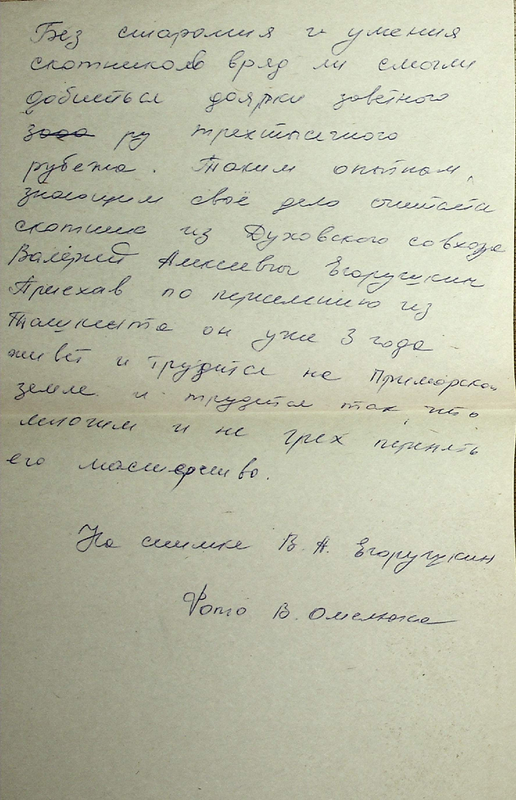 Без старания и умения
скотников вряд ли смогли
добиться доярки заветного
ру трехтысячного
рубежа. Таким опытным,
знающим своё дело считают
скотника из Духовского совхоза
Валерий Алексеевич Егорушкин
Приехав по переселению из
Ташкента он уже 3 года
живёт и трудится на Приморской
земле и трудится так, что
многим и не грех перенять
его мастерство.
На снимке В. А. Егорушкин
Фото В. Омелюка